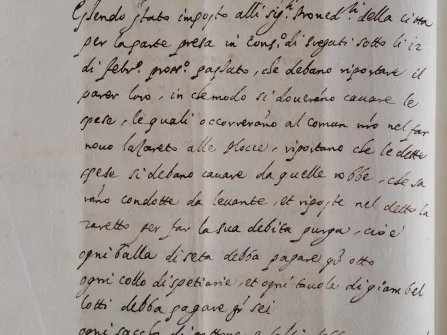 Essendo stato imposto alli sig.ri Proved.ri della citta
per la parte presa in Cons.o di Pregati sotto li 12
di febr.o pross.o passato, che debano riportare il
parer loro, in che modo si doverano cavare le
spese, le quali occorrerano al comun nro nel far
novo lazareto alle Plocce, riportano che le dette
spese si debano cavare da quelle robbe, che sa
rano condotte da levante, et riposte nel detto la
zaretto per far la sua debita purga, cioè
ogni balla di seta debba pagare gri otto
ogni collo di spetiarie, et ogni tavola di giambel
lotti debba pagare gri sei
ogni sacco di